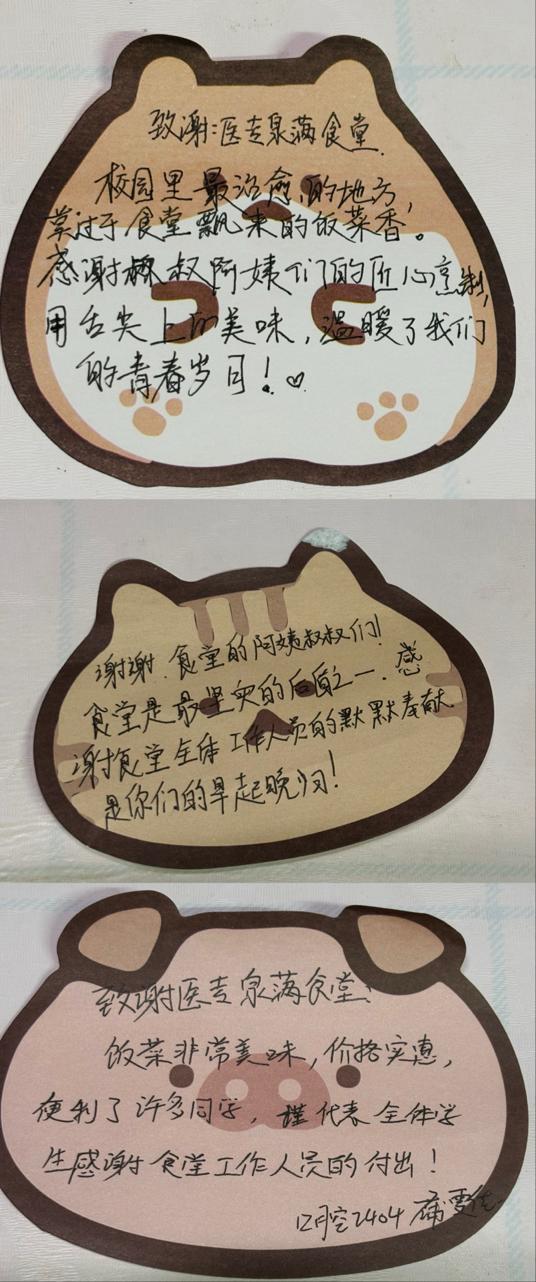 致谢:医专泉满食堂
校园里最治愈的地方,
莫过于食堂飘来的饭菜香。
感谢叔叔阿姨们的匠心烹制,
用舌尖上的美味,温暖了我们
的青春岁月!♡
谢谢食堂的阿姨叔叔们!
食堂是最坚实的后盾之一.感
谢食堂全体工作人员的默默奉献.
是你们的早起晚归!
致谢医专泉满食堂:
饭菜非常美味,价格实惠,
便利了许多同学,谨代表全体学
生感谢食堂工作人员的付出!
口腔2404